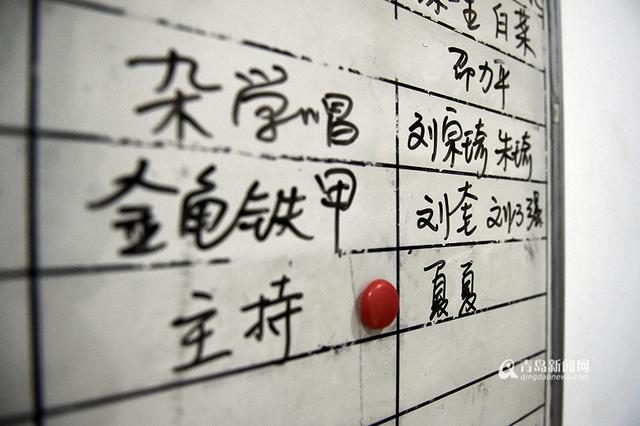 白菜
邵力平
杂学唱 刘宗琦 朱琦
金龟铁甲 刘奎 刘乃强
主持 夏夏
青岛新闻网
qingdaonews.com